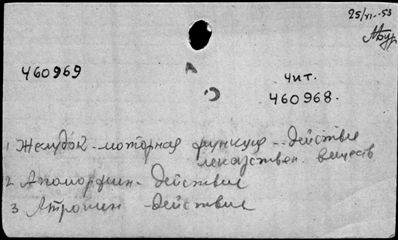 25/VI-53
460969
чит.
460968.
1 Желудок - моторная функция - действие
лекарствен. веществ
2 Апоморфин - действие
3 Атропин действие